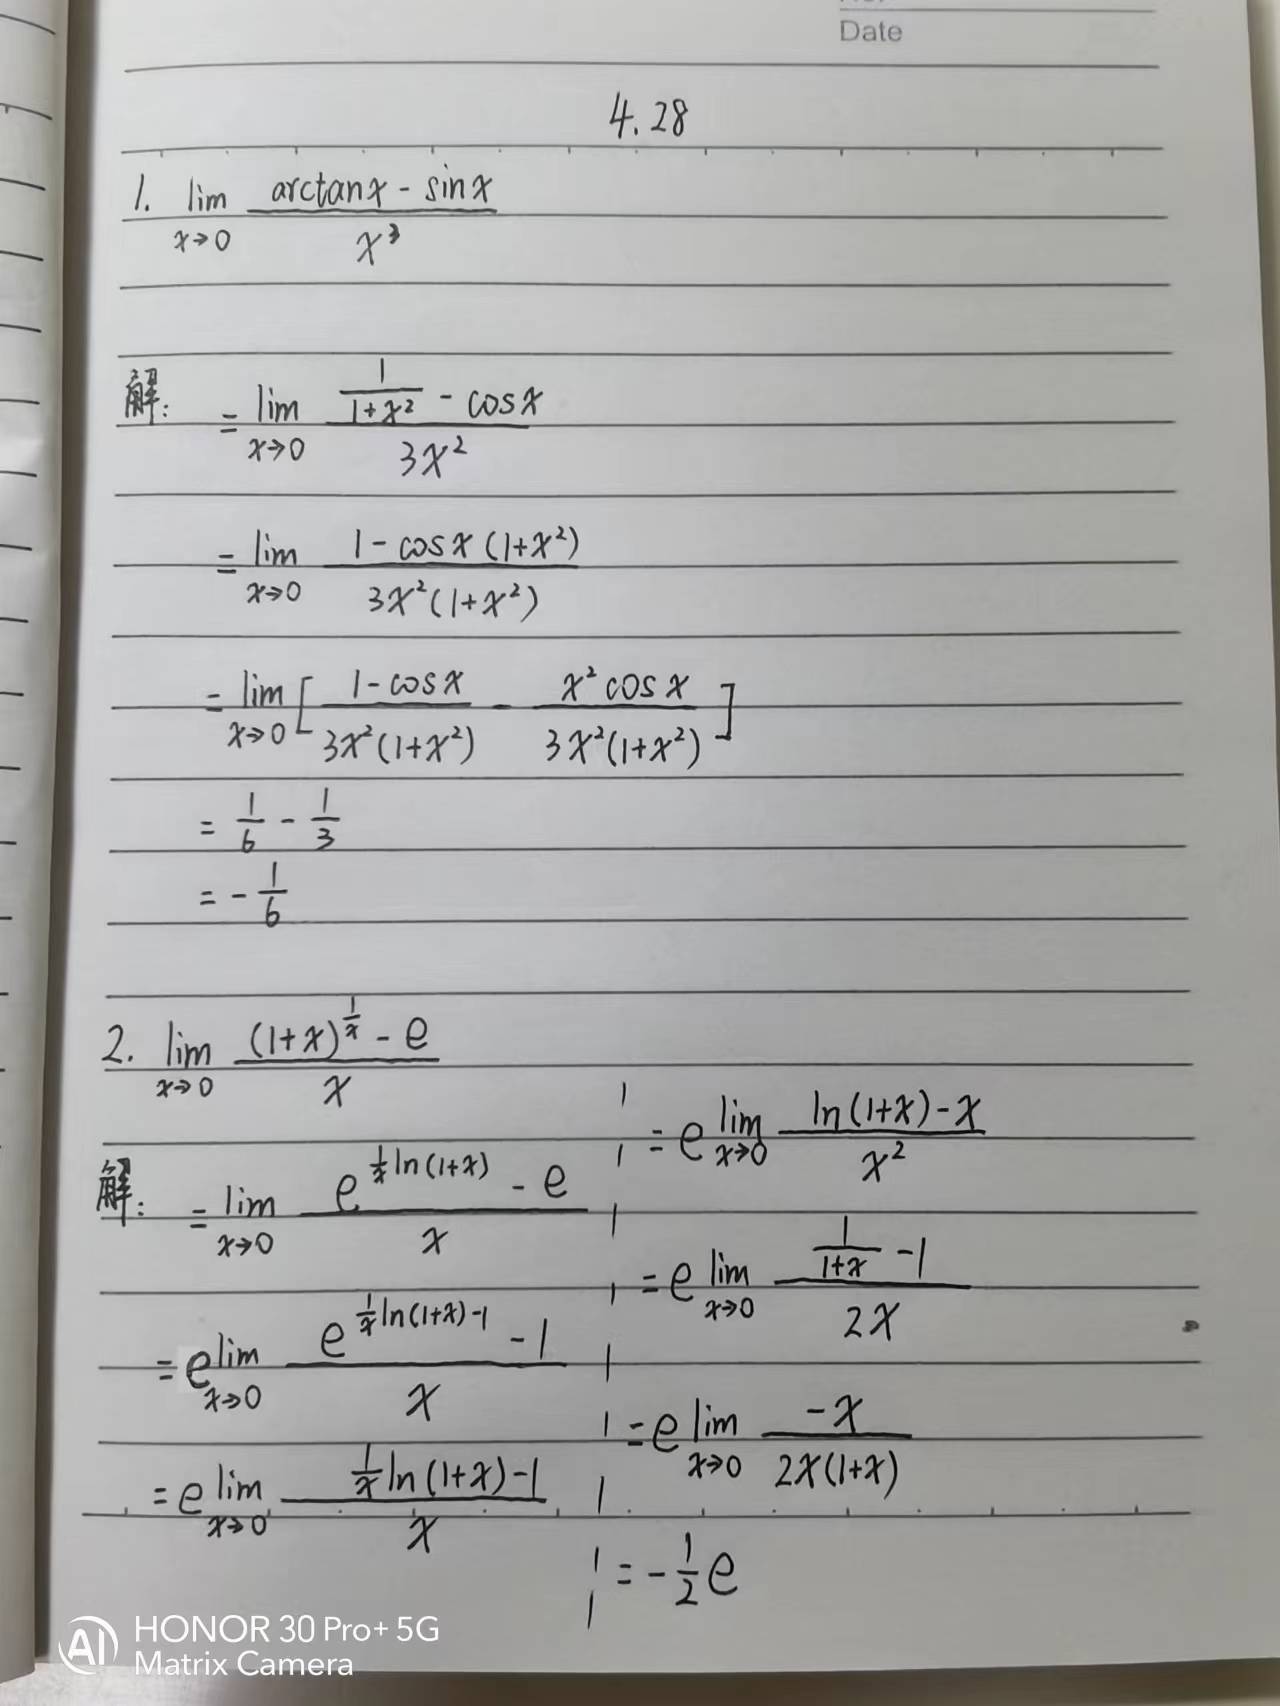 Date
4.28
1. lim x→0 (arctanx - sinx)/x³
解: = lim x→0 (1/(1+x²) - cosx)/(3x²)
= lim x→0 (1 - cosx(1+x²))/(3x²(1+x²))
= lim x→0 [(1-cosx)/(3x²(1+x²)) - (x²cosx)/(3x²(1+x²))]
= 1/6 - 1/3
= -1/6
2. lim x→0 ((1+x)^(1/x) - e)/x
解: = lim x→0 (e^(1/x ln(1+x)) - e)/x
= e lim x→0 (e^(1/x ln(1+x)-1) - 1)/x
= e lim x→0 (1/x ln(1+x) - 1)/x
= e lim x→0 (ln(1+x) - x)/x²
= e lim x→0 (1/(1+x) - 1)/(2x)
= e lim x→0 (-x)/(2x(1+x))
= -1/2 e
AI HONOR 30 Pro+ 5G
Matrix Camera